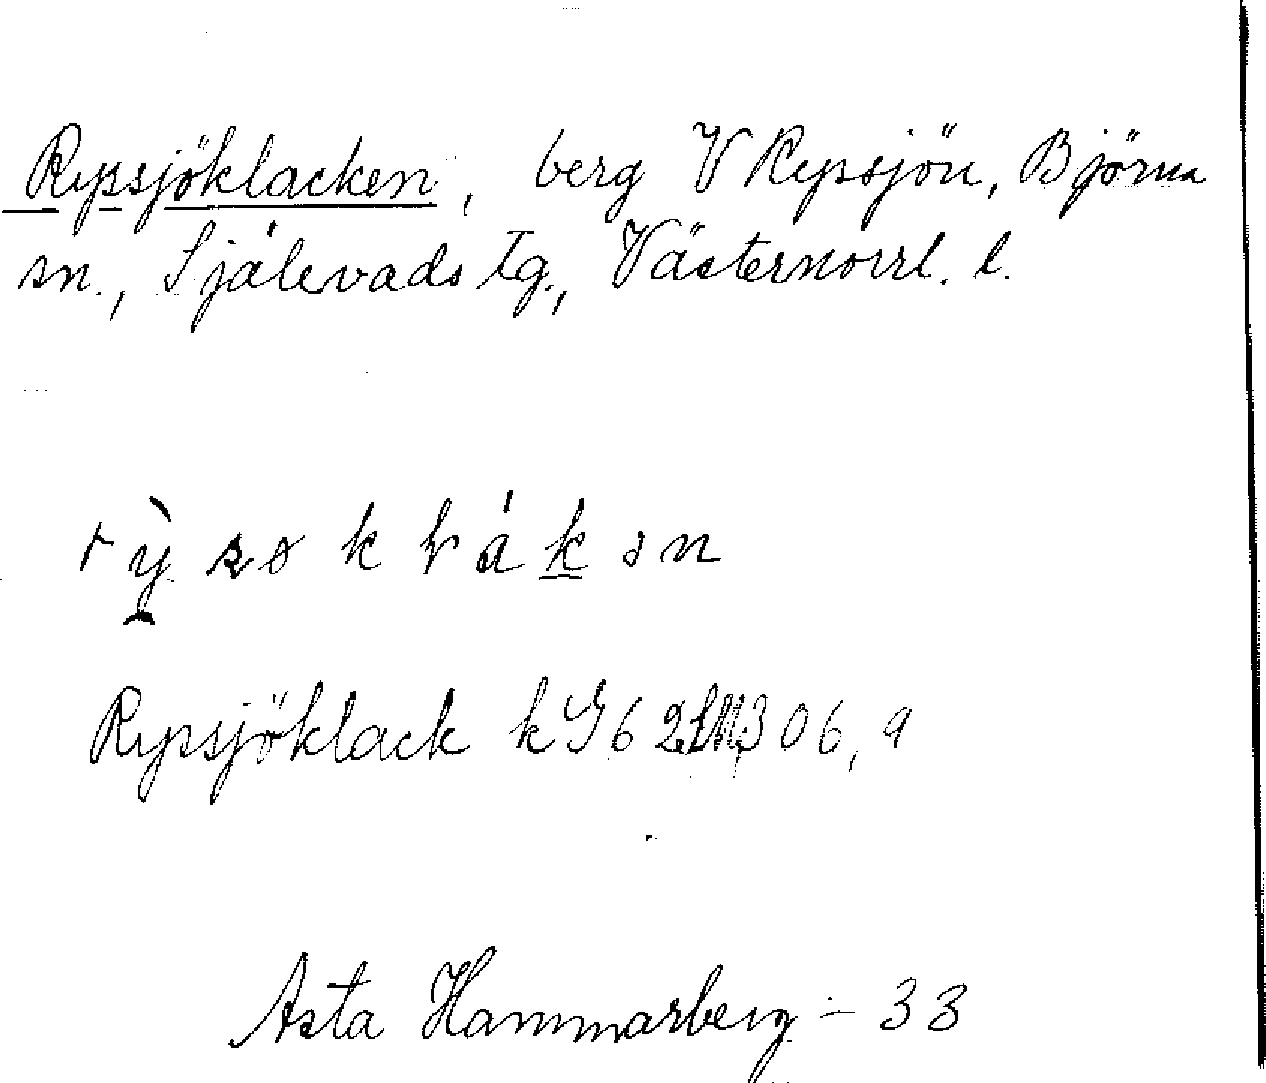 Rypsjöklacken, berg V Rypsjön, Björna
sn., Själevads tg., Västernorrl. l.
Rypsjöklack k 62 306, 9
Asta Hammarberg - 33